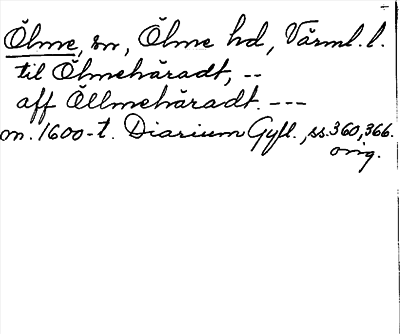 Ölme, sn, Ölme hd, Värml. l.
til Ölmehäradt, --
aff Öllmehäradt. ---
m. 1600-t. Diarium Gyll., ss. 360, 366.
orig.